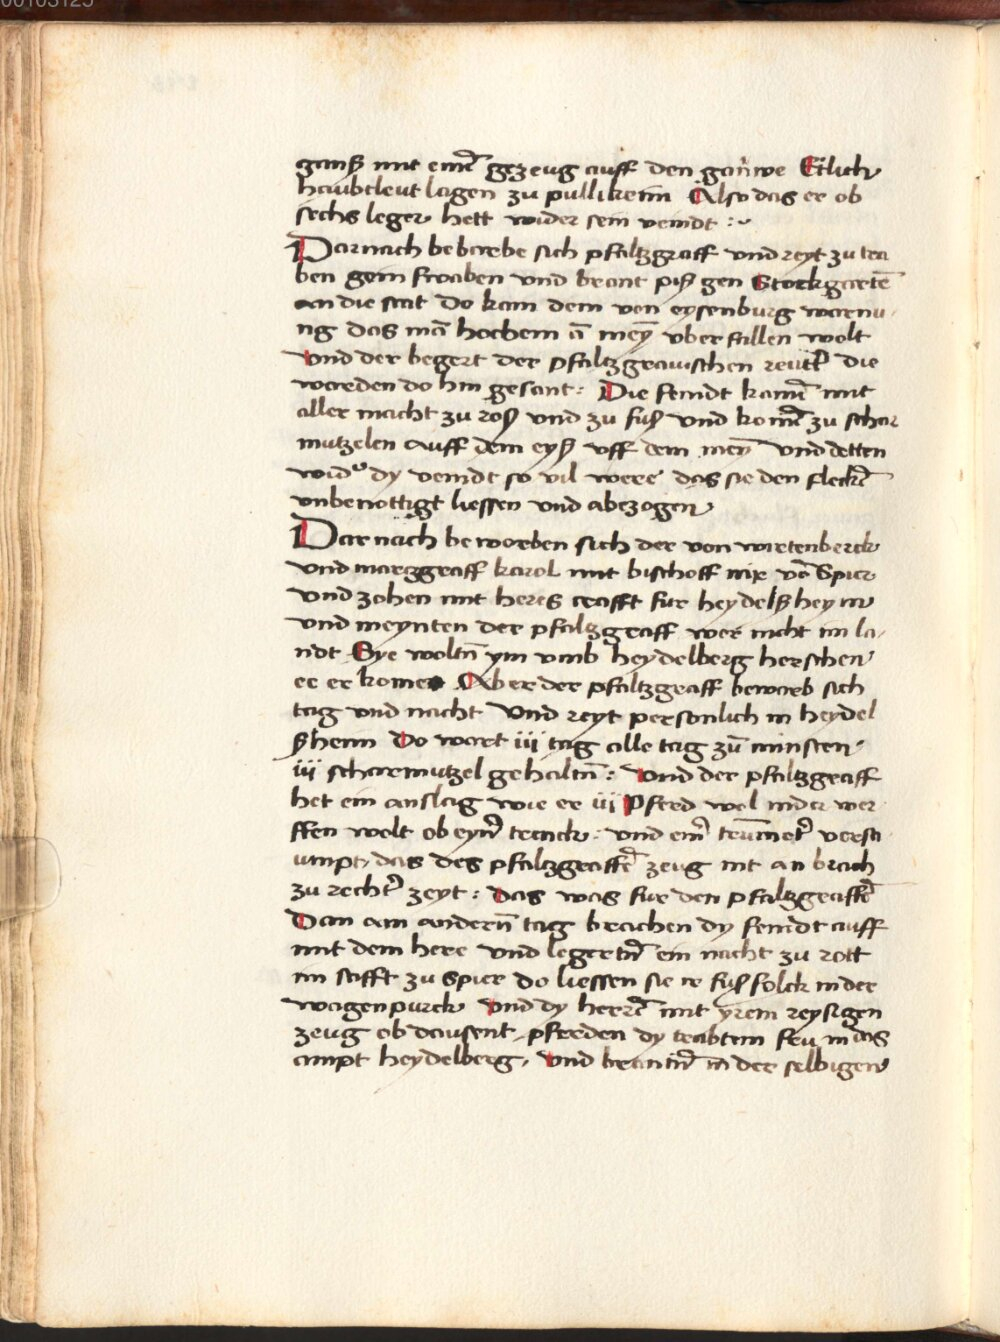 00103125
gantz mit eim̄ gezeug auff den gauwe Etlich
haubtleut lagen zu pullikeim Also das er ob
sechs leger hett wider sein veindt :~
Darnach bebarbe sich pfaltzgraff vnd reyt zu tra
ben gem swaben vnd brant piß gen Stockgartē
an die stat Do kam dem von eysenburg warnu
ng das mā hochem ā meȳ vberfallen wolt
Vnd der begert der pfaltzgrauischen reutt̄ die
worden do hin gesant : Die feindt kamē mit
aller macht zu roß vnd zu fuß vnd komē zu schar
mutzelen auff dem eyß vff dem meȳ vnd detten
wid᷒ dy veindt so vil were das sie den fleckē
vnbenottigt liessen vnd abezogen
Darnach beworben sich der von wirtenberck
vnd marggraff karol mit bischoff nix vō Spier
vnd zohen mit heres crafft fur heydelßheym
vnd meynten der pfaltzgraff wer nicht im la
ndt Sye woltn̄ ym vmb heydelberg herschen
ee er kome Aber der pfaltzgraff bewarb sich
tag vnd nacht Vnd reyt personlich in heydel
ßheim Do wart iii tag alle tag zū minsten
iii scharmutzel gehaltn̄ : Vnd der pfaltzgraff
het ein anslag wie er iii Pferd wol nider wer
ffen wolt ob eyn̄ tranck : vnd ein̄ trūmet̄ versa
umpt, das des pfaltzgraffē zeug nit an brach
zu recht̄ zeyt : Das was fur den pfaltzgraffē
Dan am andern̄ tag brachen dy feindt auff
mit dem here vnd legertn̄ ein nacht zu rott
im stifft zu Spier do liessen sie ir fuß folck in der
wagenpurck Vnd dy herrē mit yrem reysigen
zeug ob dausent pferden dy trabtem fru in das
ampt heydelberg, Vnd brantn̄ in der selbigen